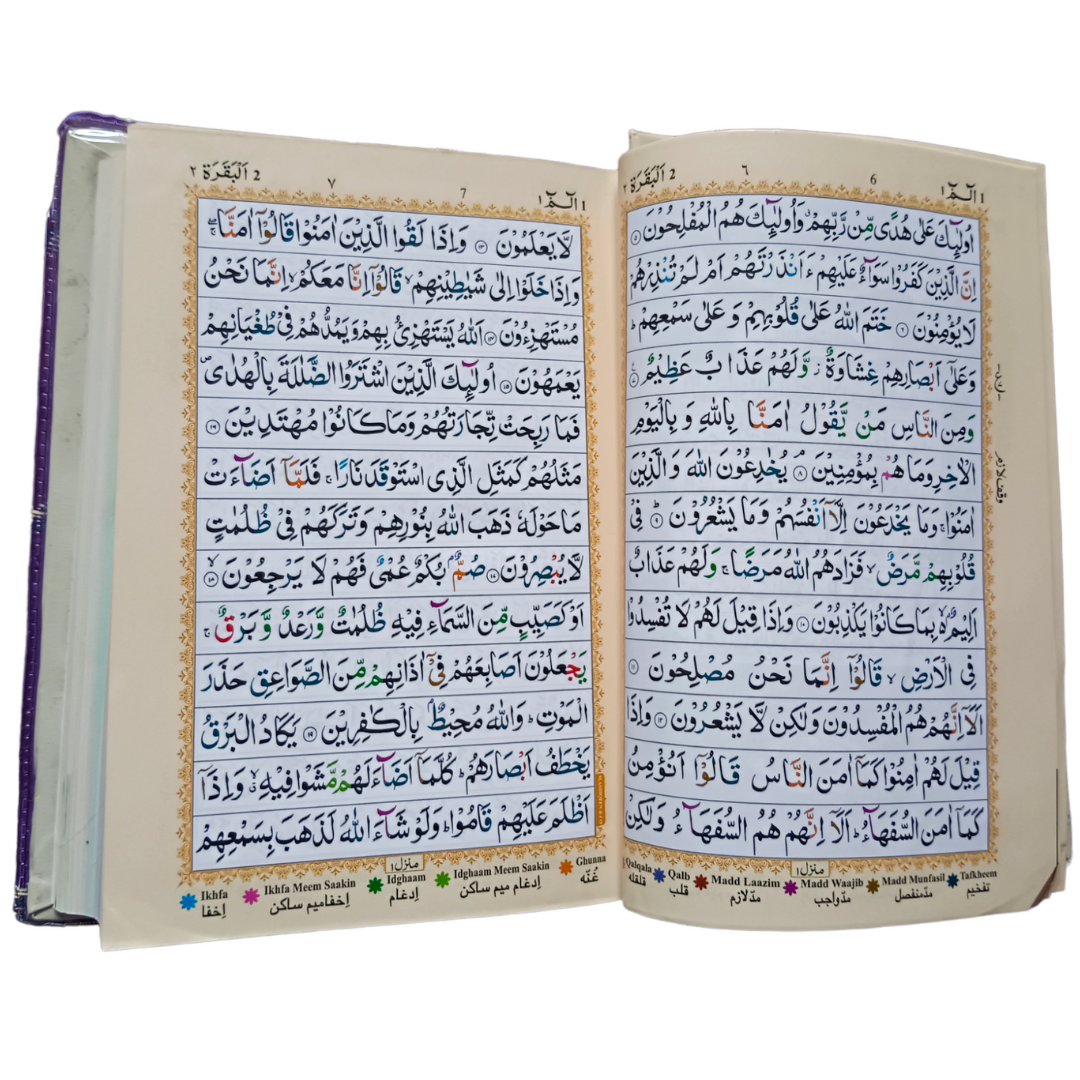 الٓمّٓ ١ 1
6
٦
2 اَلْبَقَرَة ٢
اُولٰٓئِكَ عَلٰى هُدًى مِّنْ رَّبِّهِمْ ۙ وَاُولٰٓئِكَ هُمُ الْمُفْلِحُوْنَ ۝٥
اِنَّ الَّذِيْنَ كَفَرُوْا سَوَآءٌ عَلَيْهِمْ ءَاَنْذَرْتَهُمْ اَمْ لَمْ تُنْذِرْهُمْ
لَا يُؤْمِنُوْنَ ۝٦ خَتَمَ اللهُ عَلٰى قُلُوْبِهِمْ وَ عَلٰى سَمْعِهِمْ ؕ
وَعَلٰٓى اَبْصَارِهِمْ غِشَاوَةٌ ؗ وَّلَهُمْ عَذَابٌ عَظِيْمٌ ۝٧
وَمِنَ النَّاسِ مَنْ يَّقُوْلُ اٰمَنَّا بِاللهِ وَ بِالْيَوْمِ
الْاٰخِرِ وَمَا هُمْ بِمُؤْمِنِيْنَ ۝٨ يُخٰدِعُوْنَ اللهَ وَ الَّذِيْنَ
اٰمَنُوْا ۚ وَمَا يَخْدَعُوْنَ اِلَّاۤ اَنْفُسَهُمْ وَمَا يَشْعُرُوْنَ ۝٩ فِىْ
قُلُوْبِهِمْ مَّرَضٌ ۙ فَزَادَهُمُ اللهُ مَرَضًا ۚ وَلَهُمْ عَذَابٌ
اَلِيْمٌۢ ۙ۬ بِمَا كَانُوْا يَكْذِبُوْنَ ۝١٠ وَاِذَا قِيْلَ لَهُمْ لَا تُفْسِدُوْا
فِى الْاَرْضِ ۙ قَالُوْٓا اِنَّمَا نَحْنُ مُصْلِحُوْنَ ۝١١
اَلَاۤ اِنَّهُمْ هُمُ الْمُفْسِدُوْنَ وَلٰكِنْ لَّا يَشْعُرُوْنَ ۝١٢ وَاِذَا
قِيْلَ لَهُمْ اٰمِنُوْا كَمَاۤ اٰمَنَ النَّاسُ قَالُوْٓا اَنُؤْمِنُ
كَمَاۤ اٰمَنَ السُّفَهَآءُ ؕ اَلَاۤ اِنَّهُمْ هُمُ السُّفَهَآءُ وَلٰكِنْ
منزل ١
Qalqala Qalb Madd Laazim Madd Waajib Madd Munfasil Tafkheem
قلقله قلب مدّ لازم مدّ واجب مدّ منفصل تفخيم
وقف لازم
الٓمّٓ ١ 1
7
٧
2 اَلْبَقَرَة ٢
لَّا يَعْلَمُوْنَ ۝١٣ وَاِذَا لَقُوا الَّذِيْنَ اٰمَنُوْا قَالُوْٓا اٰمَنَّا ۖۚ
وَاِذَا خَلَوْا اِلٰى شَيٰطِيْنِهِمْ ۙ قَالُوْٓا اِنَّا مَعَكُمْ ۙ اِنَّمَا نَحْنُ
مُسْتَهْزِءُوْنَ ۝١٤ اَللهُ يَسْتَهْزِئُ بِهِمْ وَيَمُدُّهُمْ فِىْ طُغْيَانِهِمْ
يَعْمَهُوْنَ ۝١٥ اُولٰٓئِكَ الَّذِيْنَ اشْتَرَوُا الضَّلٰلَةَ بِالْهُدٰى ۪
فَمَا رَبِحَتْ تِّجَارَتُهُمْ وَمَا كَانُوْا مُهْتَدِيْنَ ۝١٦
مَثَلُهُمْ كَمَثَلِ الَّذِى اسْتَوْقَدَ نَارًا ۚ فَلَمَّاۤ اَضَآءَتْ
مَا حَوْلَهٗ ذَهَبَ اللهُ بِنُوْرِهِمْ وَتَرَكَهُمْ فِىْ ظُلُمٰتٍ
لَّا يُبْصِرُوْنَ ۝١٧ صُمٌّۢ بُكْمٌ عُمْىٌ فَهُمْ لَا يَرْجِعُوْنَ ۝١٨
اَوْ كَصَيِّبٍ مِّنَ السَّمَآءِ فِيْهِ ظُلُمٰتٌ وَّرَعْدٌ وَّ بَرْقٌ ۚ
يَجْعَلُوْنَ اَصَابِعَهُمْ فِىْٓ اٰذَانِهِمْ مِّنَ الصَّوَاعِقِ حَذَرَ
الْمَوْتِ ؕ وَاللهُ مُحِيْطٌۢ بِالْكٰفِرِيْنَ ۝١٩ يَكَادُ الْبَرْقُ
يَخْطَفُ اَبْصَارَهُمْ ؕ كُلَّمَاۤ اَضَآءَ لَهُمْ مَّشَوْا فِيْهِ ۙ وَاِذَاۤ
اَظْلَمَ عَلَيْهِمْ قَامُوْا ؕ وَلَوْ شَآءَ اللهُ لَذَهَبَ بِسَمْعِهِمْ
منزل ١
Ikhfa Ikhfa Meem Saakin Idghaam Idghaam Meem Saakin Ghunna
اِخفا اِخفا ميم ساكن اِدغام اِدغام ميم ساكن غُنّه